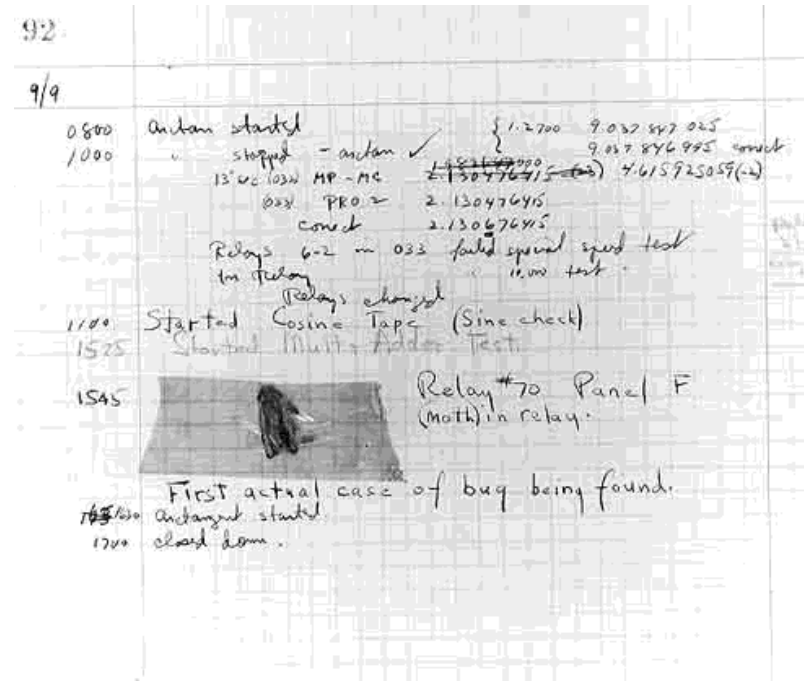 92
9/9
0800 Antan started { 1.2700 9.037 847 025
1000 " stopped - antan ✓ 9.037 846 995 correct
13"uc (032) MP - MC 2.130476415 (-3) 4.615925059(-2)
(033) PRO 2 2.130476415
correct 2.130676415
Relays 6-2 in 033 failed special speed test
in Relay " 10.000 test.
Relays changed
1100 Started Cosine Tape (Sine check)
1525 Started Mult+Adder Test.
1545 Relay #70 Panel F
(moth) in relay.
First actual case of bug being found.
1630 antangent started.
1700 closed down.